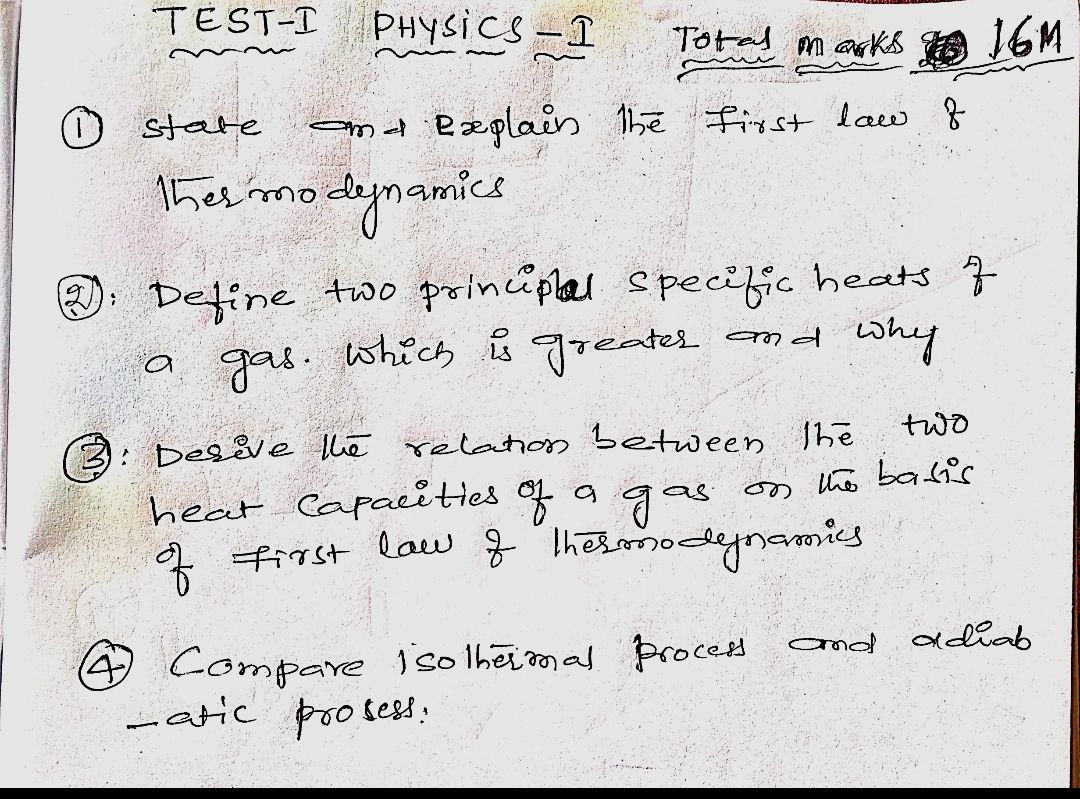 TEST-I PHYSICS-I Total marks 16M
① state and Explain the first law of
thermodynamics
②: Define two principal specific heats of
a gas. which is greater and why
③: Derive the relation between the two
heat capacities of a gas on the basis
of first law of thermodynamics
④ Compare isothermal process and adiab
-atic prosess.